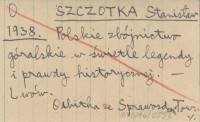 O SZCZOTKA Stanisław
1938. Polskie zbójnictwo
góralskie w świetle legendy
i prawdy historycznej. —
Lwów.
Odbitka ze Sprawozdań Tow.